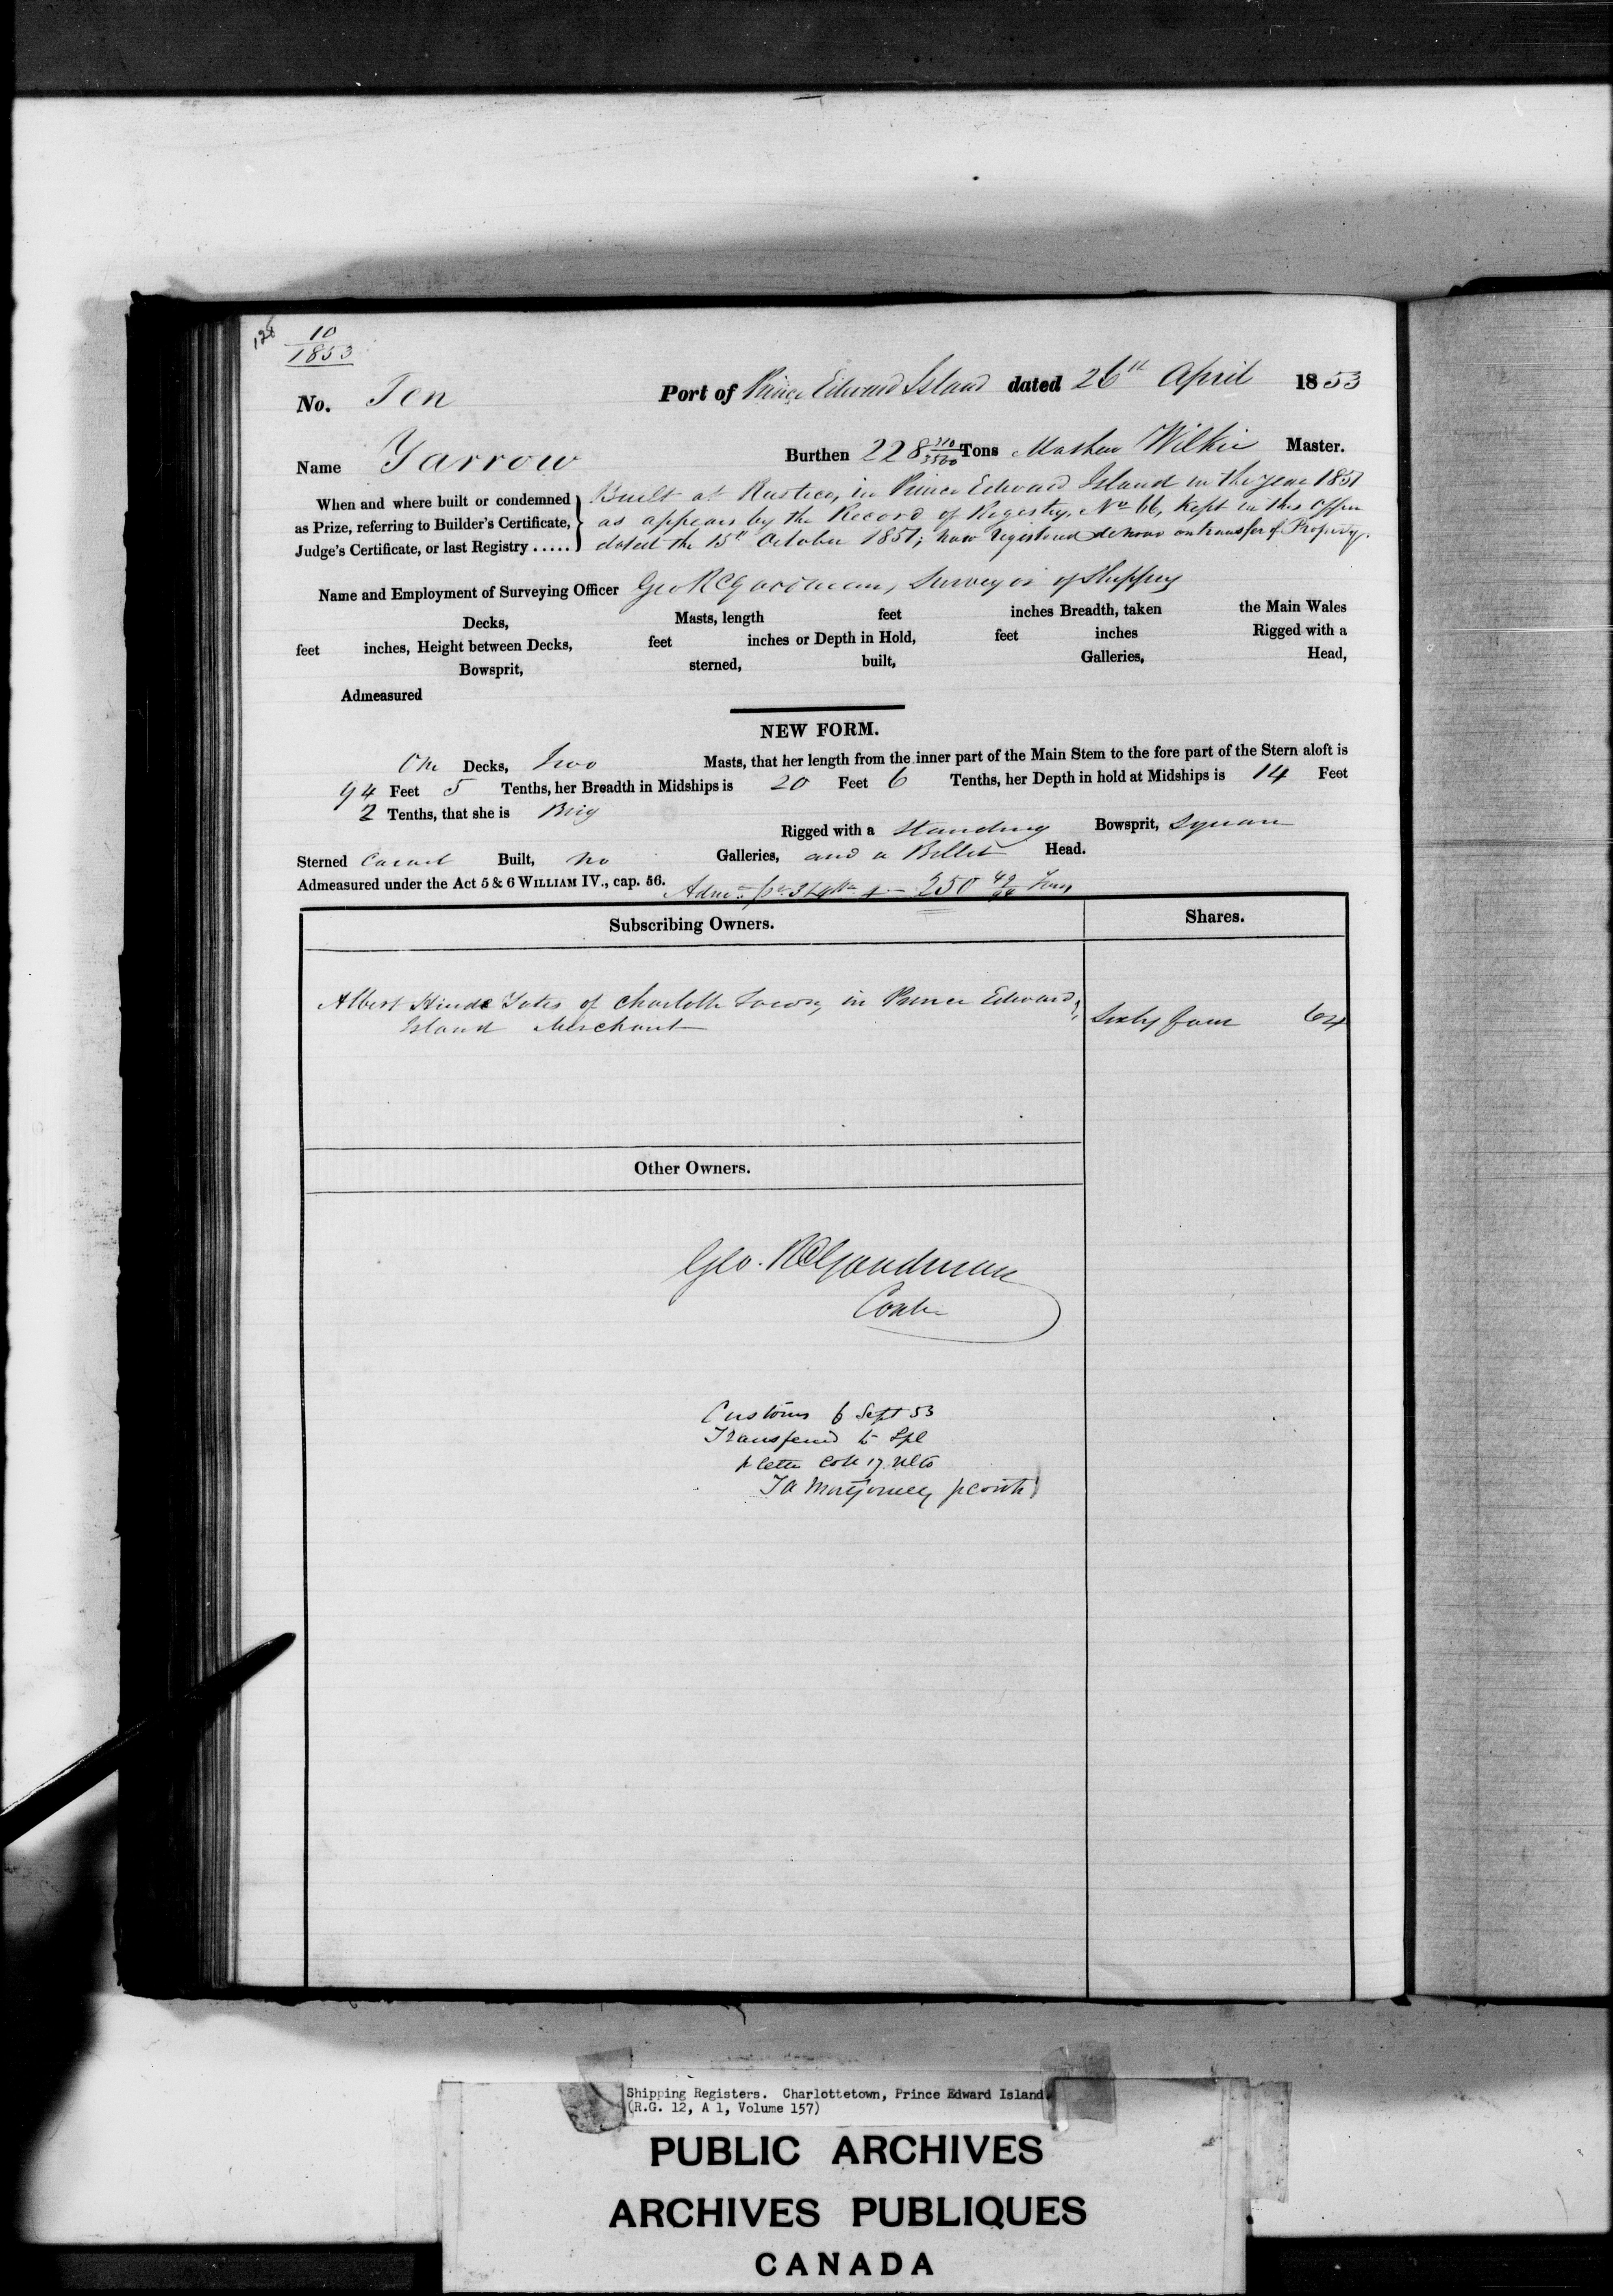 10
1853
No. Ten Port of Prince Edward Island dated 26th April 1853
Name Yarrow Burthen 228 310/3500 Tons Mathew Wilkie Master.
When and where built or condemned Built at Rustico, in Prince Edward Island in the year 1851
as Prize, referring to Builder's Certificate, as appears by the Record of Registry, No 66, kept in this Office
Judge's Certificate, or last Registry ..... dated the 15th October 1851; now registered de novo on transfer of Property.
Name and Employment of Surveying Officer Geo R C Goodman, Surveyor of Shipping
Decks, Masts, length feet inches Breadth, taken the Main Wales
feet inches, Height between Decks, feet inches or Depth in Hold, feet inches Rigged with a
Bowsprit, sterned, built, Galleries, Head,
Admeasured
NEW FORM.
One Decks, Two Masts, that her length from the inner part of the Main Stem to the fore part of the Stern aloft is
94 Feet 5 Tenths, her Breadth in Midships is 20 Feet 6 Tenths, her Depth in hold at Midships is 14 Feet
2 Tenths, that she is Brig Rigged with a Standing Bowsprit, Square
Sterned Carvel Built, No Galleries, and a Billet Head.
Admeasured under the Act 5 & 6 WILLIAM IV., cap. 56. 250 Tons
Subscribing Owners. Shares.
Albert Hinde Yates of Charlotte Town, in Prince Edward
Island Merchant Sixty four 64
Other Owners.
Geo. R C Goodman
Contr
Customs 6 Sept 53
Transferred to Lpl
p letter 17 Ulto
Montgomery p contr
Shipping Registers. Charlottetown, Prince Edward Island
(R.G. 12, A 1, Volume 157)
PUBLIC ARCHIVES
ARCHIVES PUBLIQUES
CANADA